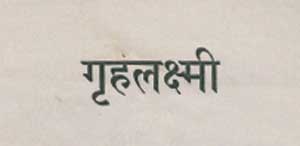 गृहलक्ष्मी